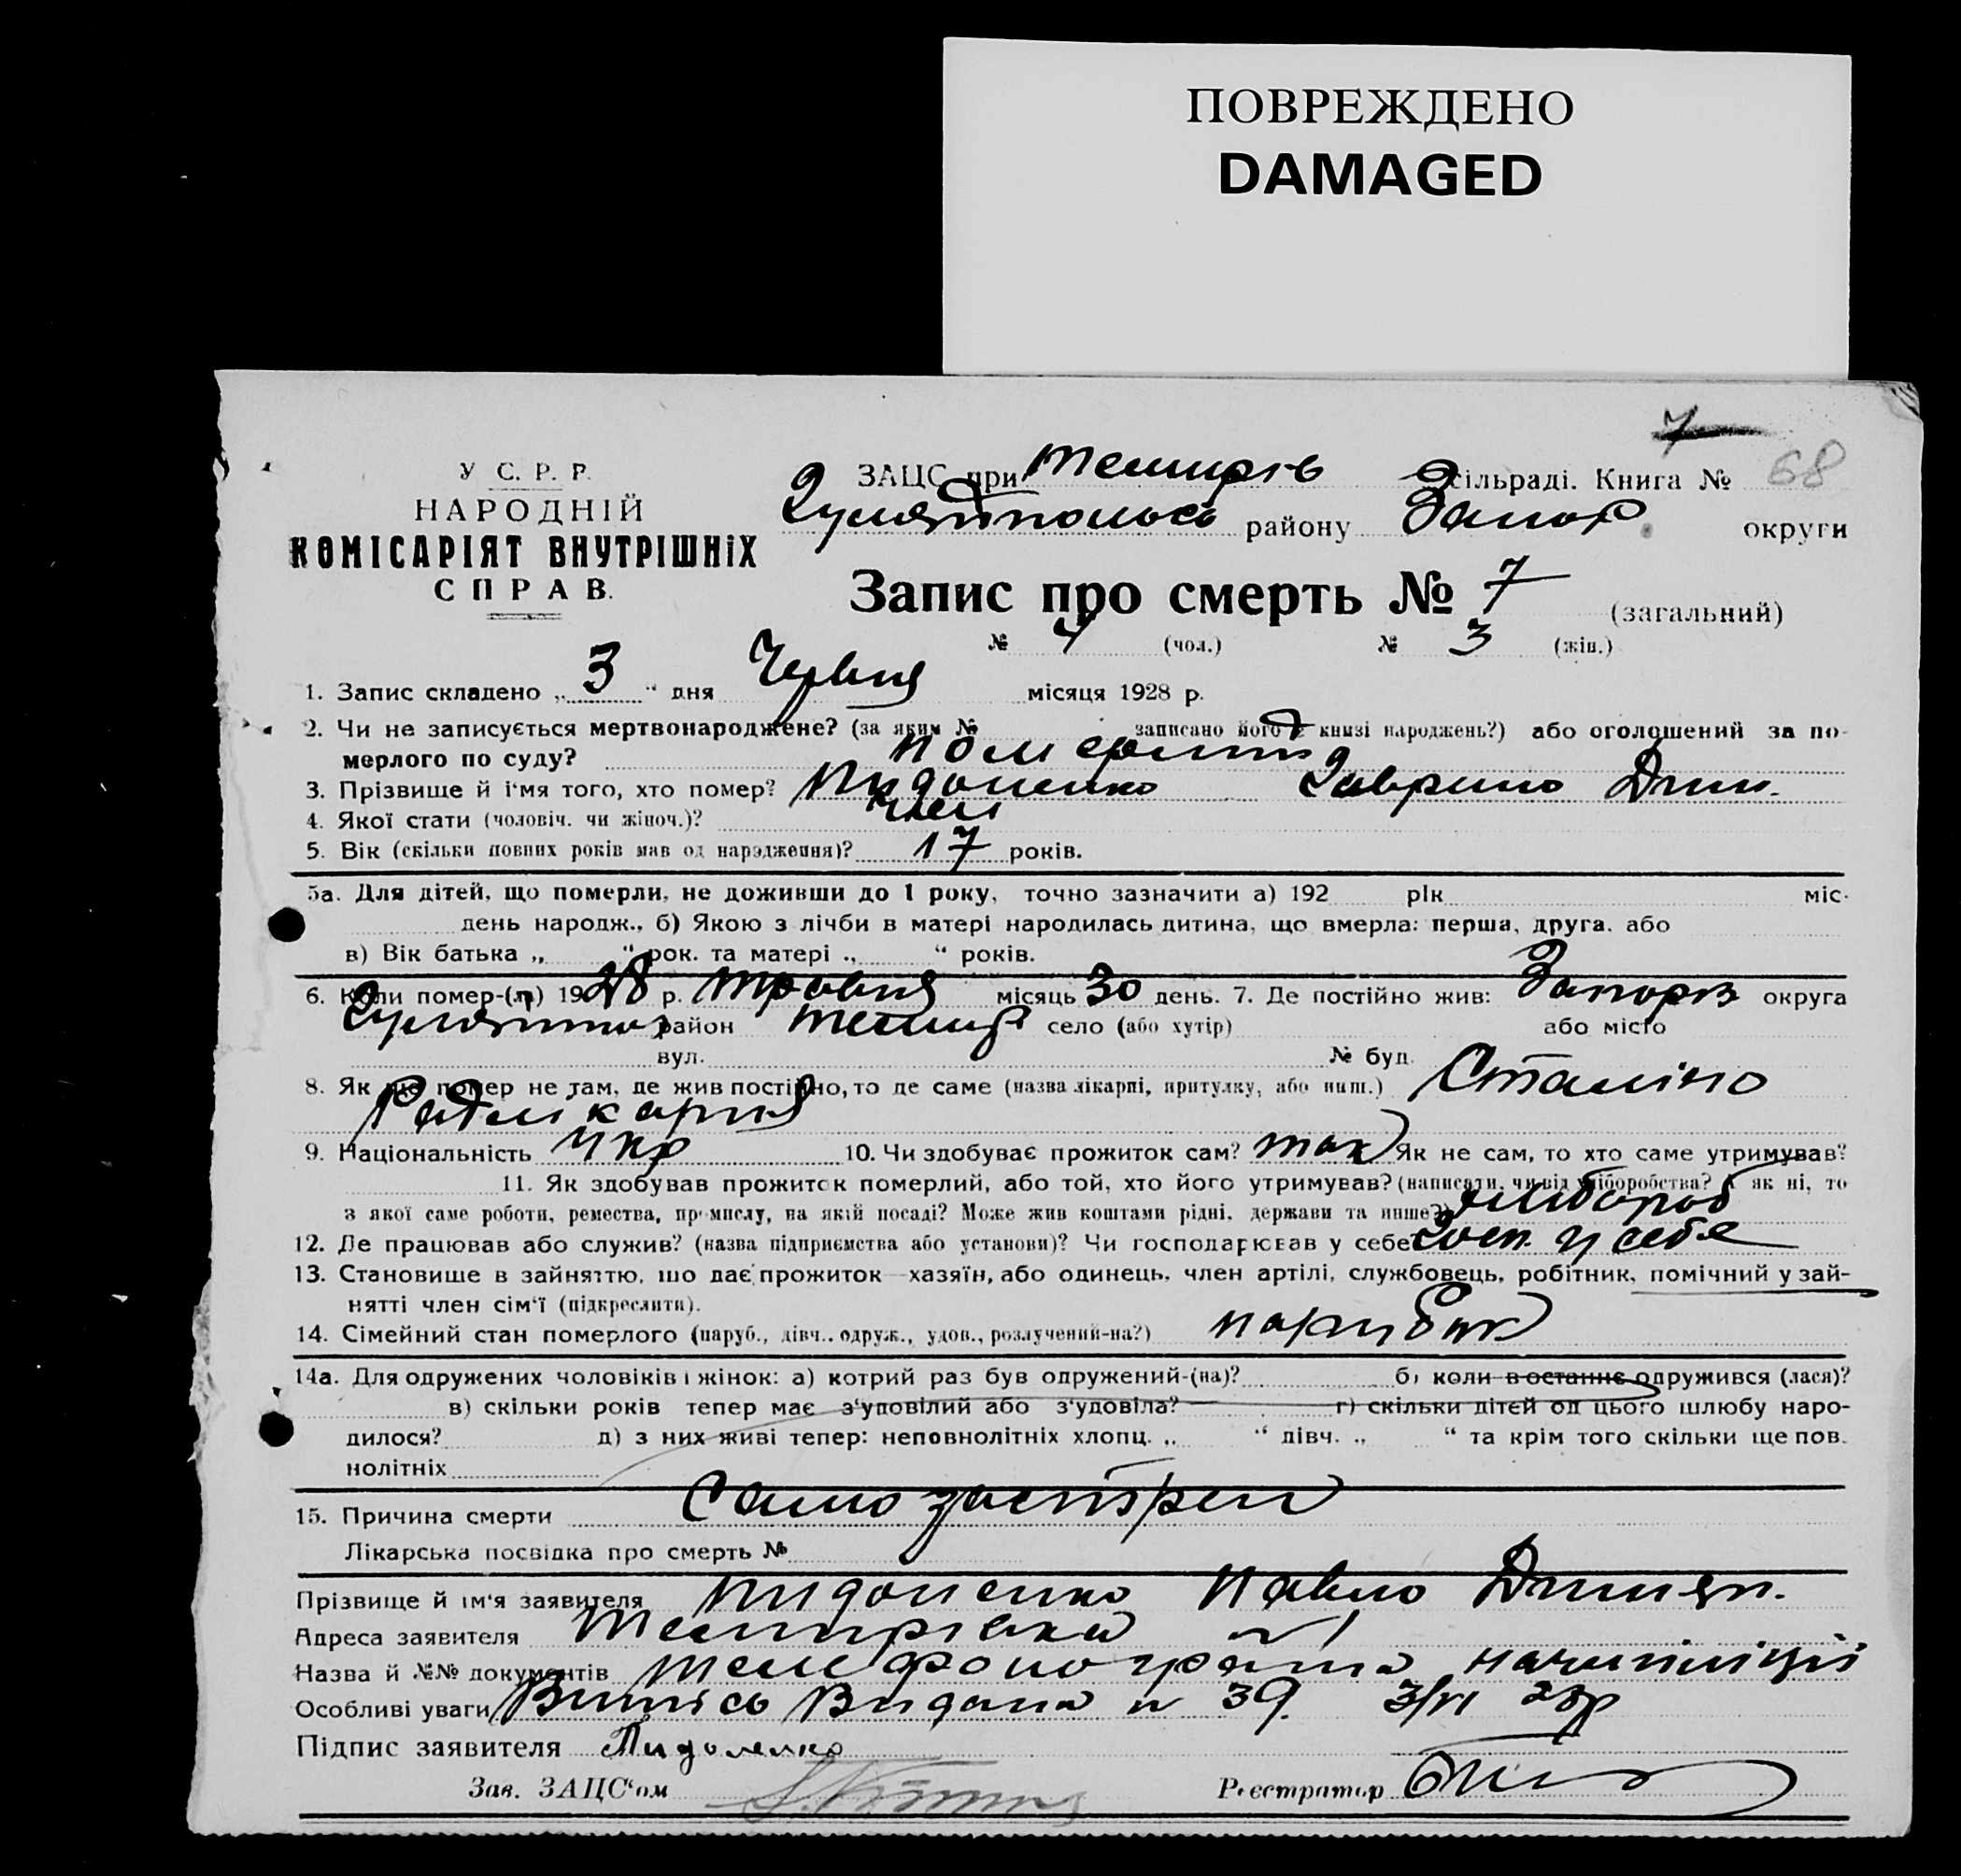 ПОВРЕЖДЕНО
DAMAGED
7
68
У С. Р. Р.
НАРОДНІЙ
КОМІСАРІЯТ ВНУТРІШНіХ
СПРАВ.
ЗАЦС при Темирів сільраді. Книга №
Гуляйпольсь району Запор. округи
Запис про смерть № 7 (загальний)
№ 4 (чол.) № 3 (жін.)
1. Запис складено „ 3 “ дня Червня місяця 1928 р.
2. Чи не записується мертвонароджене? (за яким № записано його в книзі народжень?) або оголошений за по-
мерлого по суду?
3. Прізвище й і'мя того, хто помер? Пидоненко Гаврило Дми.
4. Якої стати (чоловіч. чи жіноч.)? Чол
5. Вік (скільки повних років мав од народження)? 17 років.
5а. Для дітей, що померли, не доживши до 1 року, точно зазначити а) 192 рік міс-
день народж., б) Якою з лічби в матері народилась дитина, що вмерла: перша, друга, або
в) Вік батька „ “ рок. та матері „ “ років.
6. Коли помер-(ла) 1928 р. травня місяць 30 день. 7. Де постійно жив: Запоріз округа
Гуляйпол район Темир село (або хутір) або місто
вул. № буд.
8. Як що помер не там, де жив постійно, то де саме (назва лікарні, притулку, або инш.) Сталіно
Радлікарня
9. Національність Укр 10. Чи здобуває прожиток сам? так Як не сам, то хто саме утримував?
11. Як здобував прожиток померлий, або той, хто його утримував? (написати, чи від хліборобства? а як ні, то
з якої саме роботи, ремества, промислу, на якій посаді? Може жив коштами рідні, держави та инше?) хлібороб
12. Де працював або служив? (назва підприємства або установи)? Чи господарював у себе? Госп. у себе
13. Становище в зайняттю, що дає прожиток—хазяїн, або одинець, член артілі, службовець, робітник, помічний у зай-
нятті член сім'ї (підкреслити).
14. Сімейний стан померлого (паруб., дівч., одруж., удов., розлучений-на?) парубок
14а. Для одружених чоловіків і жінок: а) котрий раз був одружений-(на)? б) коли в останнє одружився (лася)?
в) скільки років тепер має з'удовілий або з'удовіла? г) скільки дітей од цього шлюбу наро-
дилося? д) з них живі тепер: неповнолітніх хлопц. „ “ дівч. „ “ та крім того скільки ще пов.
нолітніх
15. Причина смерти Самозастрел
Лікарська посвідка про смерть №
Прізвище й ім'я заявителя Пидоненко Павло Дмитр.
Адреса заявителя Темирівка
Назва й №№ документів телефонограма начміліції
Особливі уваги Витись Видана № 39. 3/VI 28р
Підпис заявителя Пидоненко
Зав. ЗАЦС'ом
Реєстратор